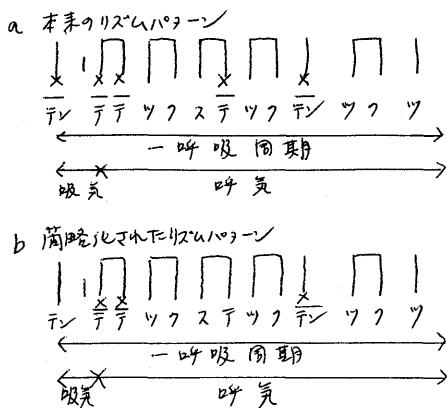 a 本来のリズムパターン
テン テ テ ツ ク ス テ ツ ク テン ツ ク ツ
一呼吸周期
吸気 呼気
b 簡略化されたリズムパターン
テン テ テ ツ ク ス テ ツ ク テン ツ ク ツ
一呼吸周期
吸気 呼気